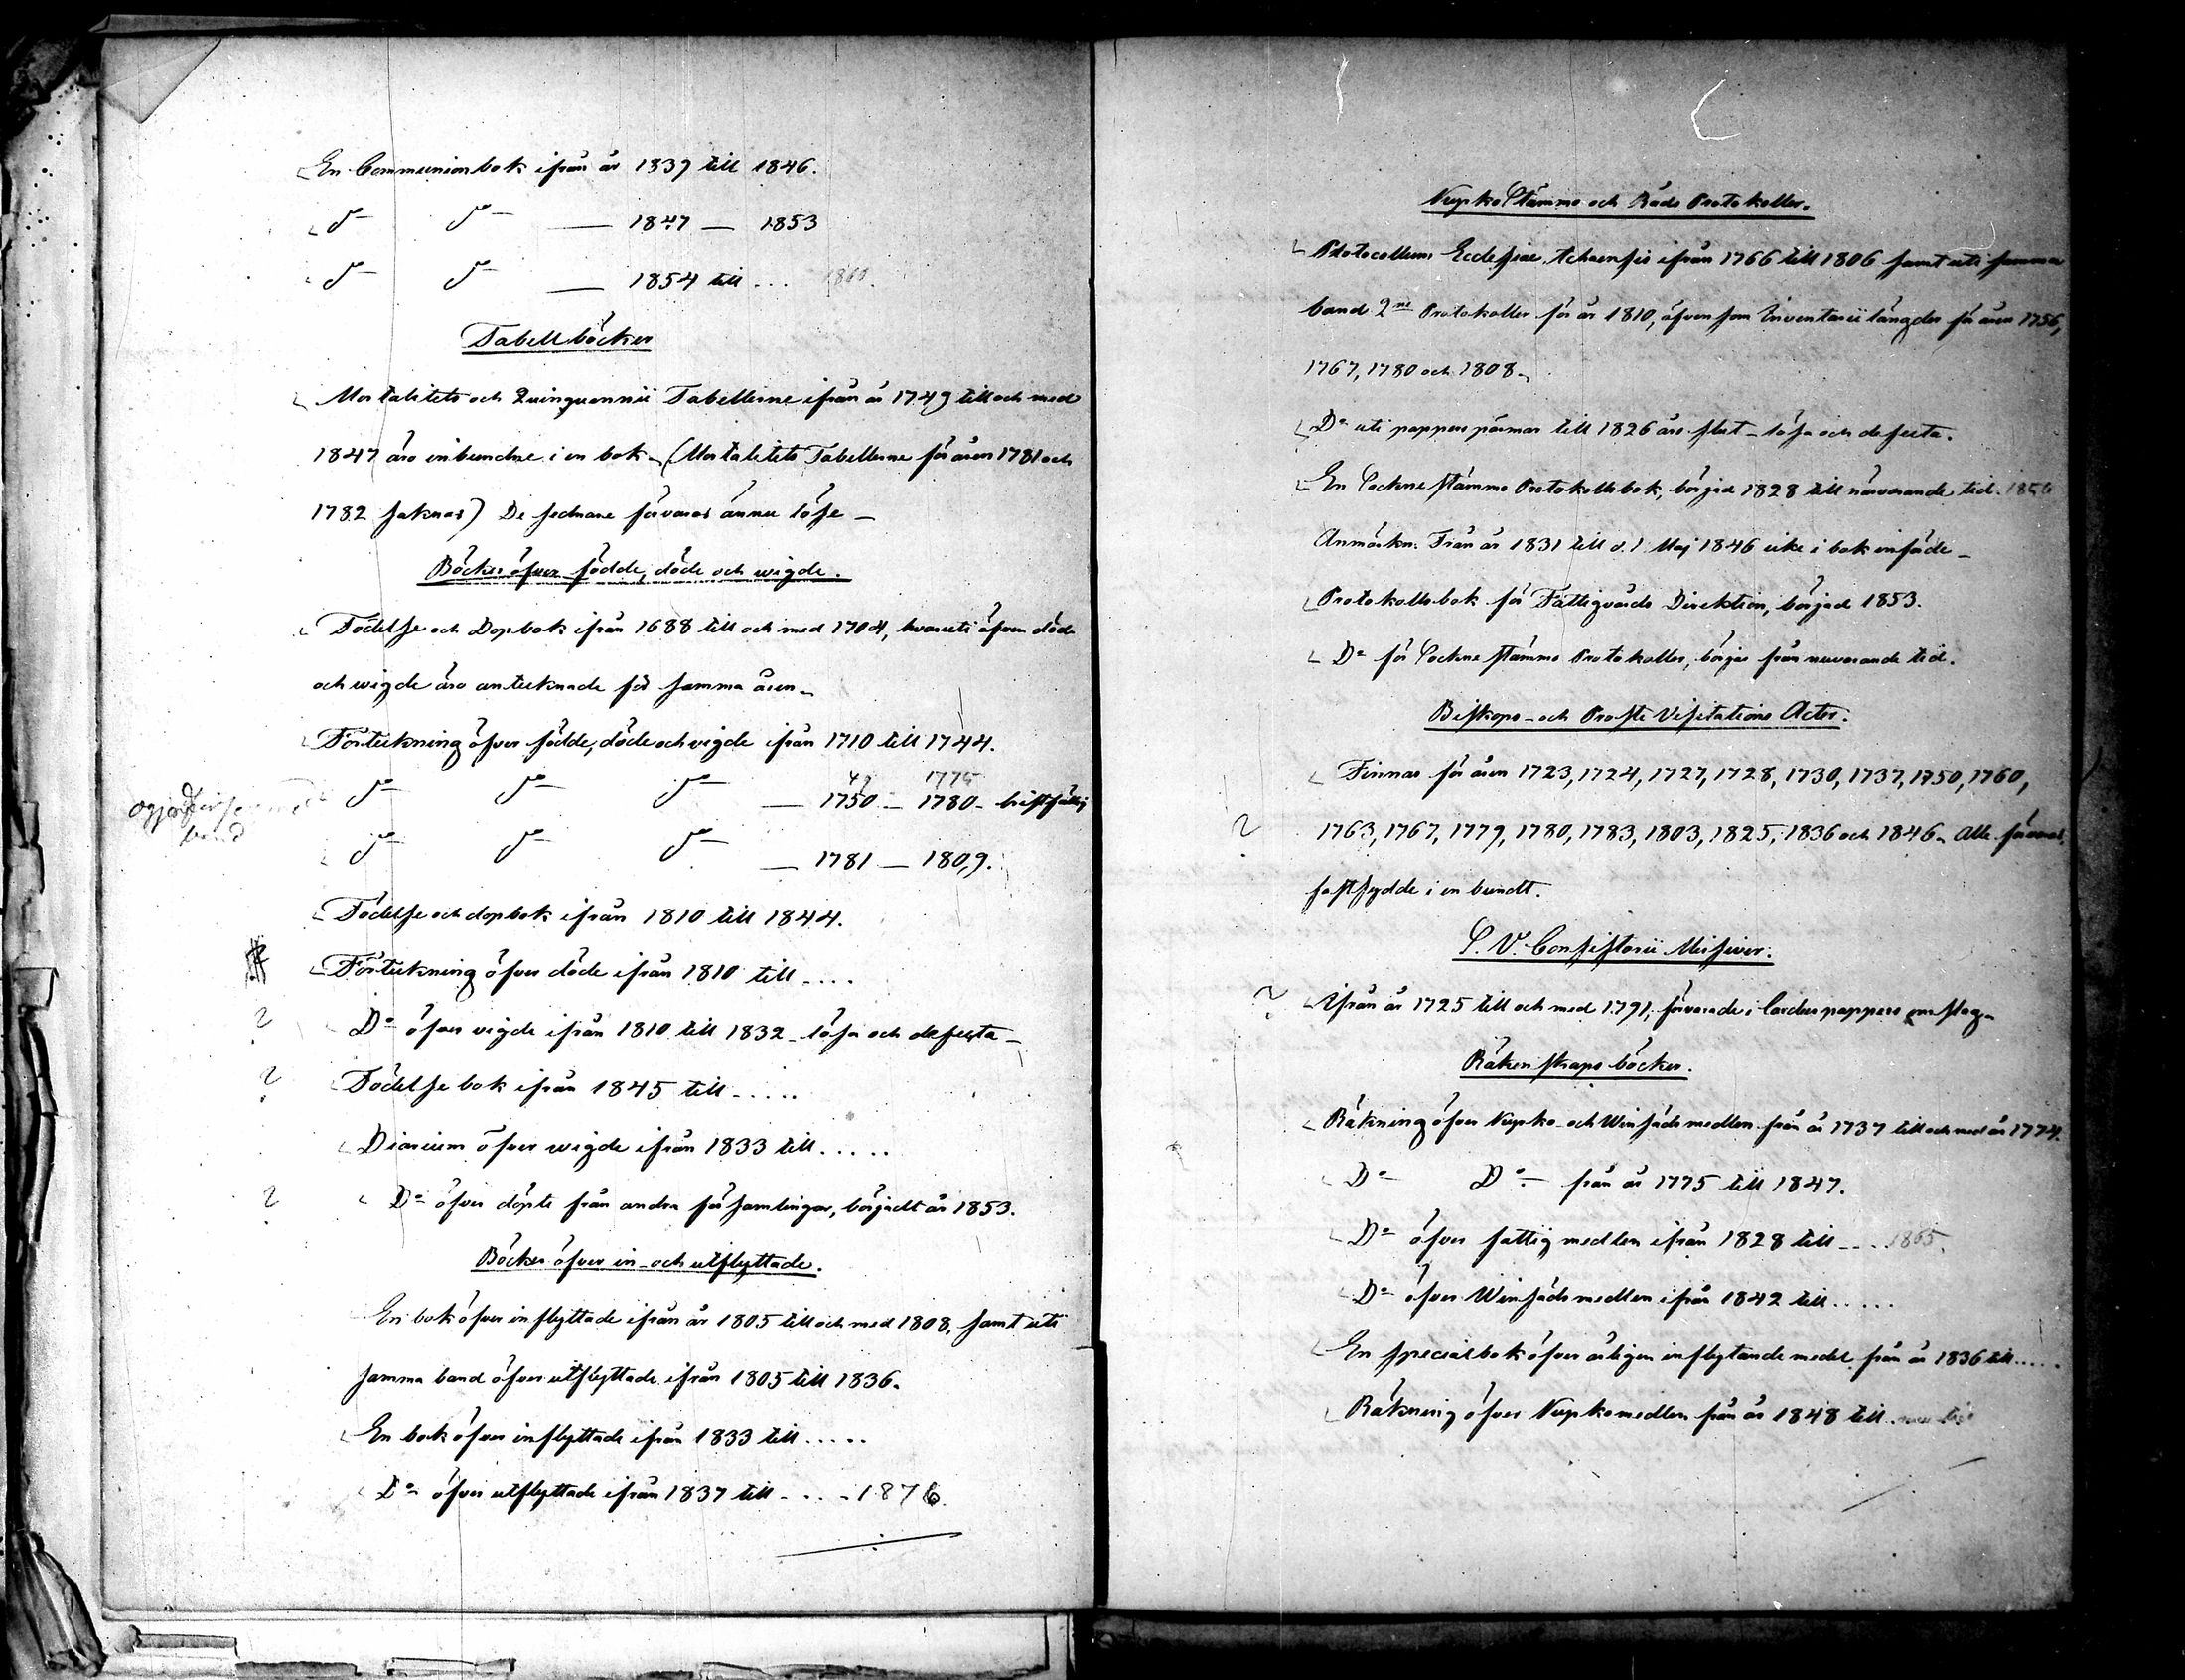 En Communionbok ifrån år 1837 till 1846.
do do — 1847 — 1853
do do — 1854 till ... 1860.
Tabellböcker
Mortalitets och Quinquennii Tabellerne ifrån år 1749 till och med
1847 äro inbundne i en bok – (Mortalitets Tabellerne för åren 1781 och
1782 saknas) De sednare förvaras ännu löse –
Böcker öfver födde, döde och wigde.
Födelse och Dopbok ifrån 1688 till och med 1704, hvaruti öfven döde
och wigde äro antecknade för samma åren –
Förteckning öfver födde, döde och vigde ifrån 1710 till 1744.
49 1775
do do do — 1750 — 1780 – bristfällig
band
do do do — 1781 — 1809.
Födelse och dopbok ifrån 1810 till 1844.
Förteckning öfver döde ifrån 1810 till ....
? Do öfver vigde ifrån 1810 till 1832 – lösa och defecta –
? Födelsebok ifrån 1845 till .....
Diarium öfver wigde ifrån 1833 till .....
? Do öfver döpte från andra församlingar, börjadt år 1853.
Böcker öfver in- och utflyttade.
En bok öfver inflyttade ifrån år 1805 till och med 1808, samt uti
samma band öfver utflyttade ifrån 1805 till 1836.
En bok öfver inflyttade ifrån 1833 till .....
Do öfver utflyttade ifrån 1837 till .... 1876.
Kyrko Stämmo och Råds Protokoller.
Protocollum Ecclesiae ifrån 1766 till 1806 samt uti samma
band 2ne Protokoller för år 1810, öfvensom Inventarii längder för åren 1756,
1767, 1780 och 1808 –
Do uti papperspärmar till 1826 års slut – lösa och defecta.
En Sockne stämmo Protokollsbok, börjad 1828 till närvarande tid. 1856
Anmärkn. Från år 1831 till d. 1 Maj 1846 icke i bok införde –
Protokollsbok för Fattigvårds Direktion, börjad 1853.
Do för Sockne stämmo Protokoller, börjas från nuvarande tid.
Biskops- och Prosts Visitations Acter.
Finnas för åren 1723, 1724, 1727, 1728, 1730, 1737, 1750, 1760,
? 1763, 1767, 1779, 1780, 1783, 1803, 1825, 1836 och 1846 – Alle förvaras,
fastsydde i en bundt.
S. V. Consistorii Missiver.
? Ifrån år 1725 till och med 1791, förvarade i Carduspappers omslag –
Räkenskaps böcker.
Räkning öfver Kyrko- och Winsäds medlen från år 1737 till och med år 1774.
Do Do från år 1775 till 1847.
Do öfver fattigmedlen ifrån 1828 till .... 1865.
Do öfver Winsäds medlen ifrån 1842 till .....
En specialbok öfver årligen inflytande medel från år 1836 till .....
Räkning öfver Kyrkomedlen från år 1848 till